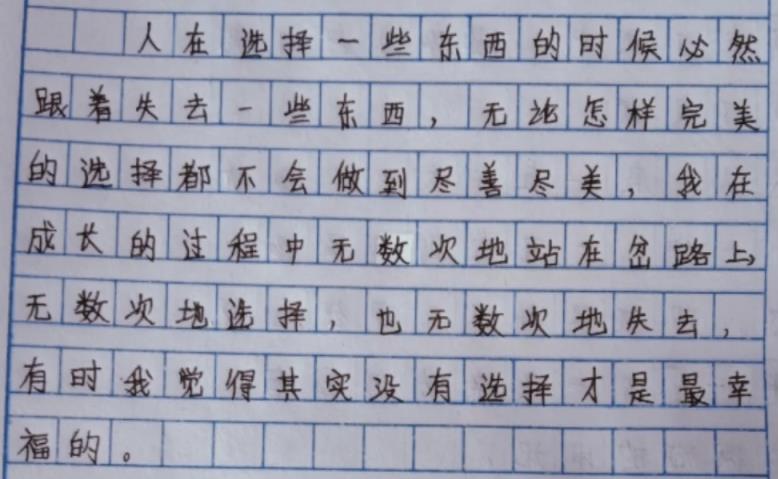 人在选择一些东西的时候必然
跟着失去一些东西，无论怎样完美
的选择都不会做到尽善尽美，我在
成长的过程中无数次地站在岔路上，
无数次地选择，也无数次地失去，
有时我觉得其实没有选择才是最幸
福的。